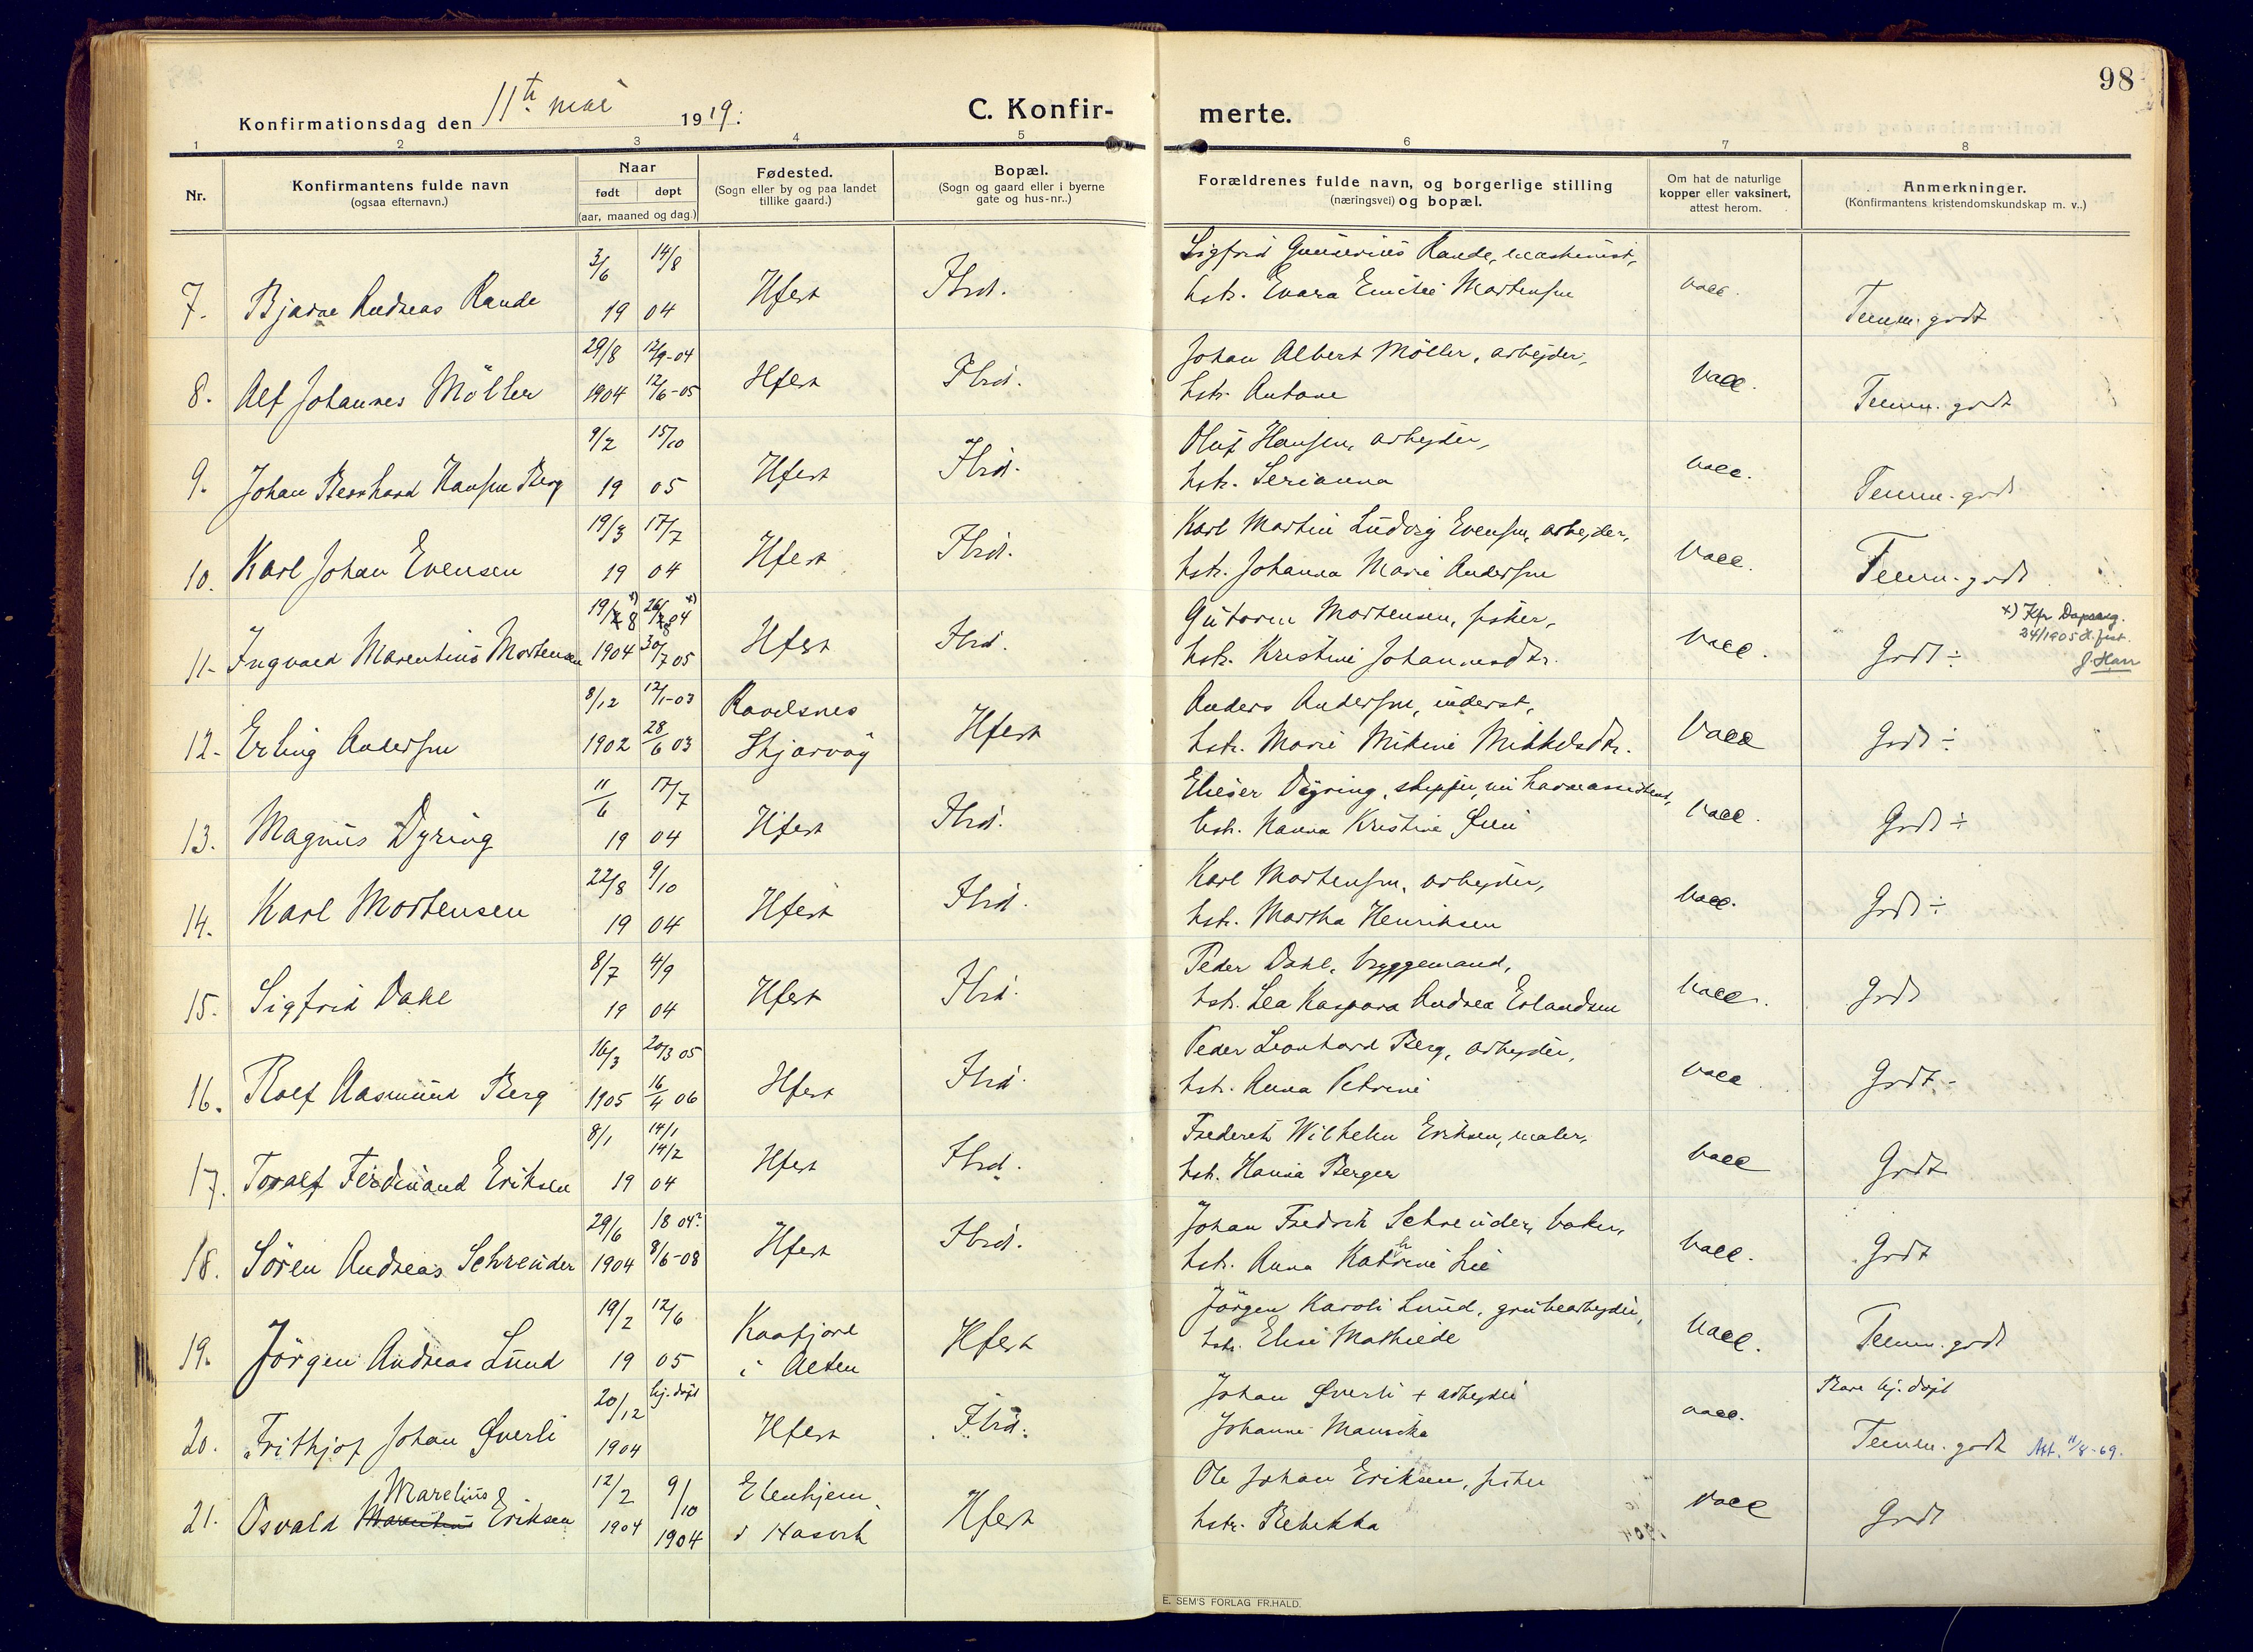 98
Konfirmationsdag den 11te mai 1919.
C. Konfir-
merte.
1 2 3 4 5 6 7 8
Nr.
Konfirmantens fulde navn
(ogsaa efternavn.)
Naar
født døpt
(aar, maaned og dag.)
Fødested.
(Sogn eller by og paa landet
tillike gaard.)
Bopæl.
(Sogn og gaard eller i byerne
gate og hus-nr..)
Forældrenes fulde navn, og borgerlige stilling
(næringsvei) og bopæl.
Om hat de naturlige
kopper eller vaksinert,
attest herom.
Anmerkninger.
(Konfirmantens kristendomskundskap m. v..)
3/6 14/8
Sigfrid Gunerius Rande, maskinist,
7. Bjarne Andreas Rande 19 04 Hfest Ibid. hstr. Evara Emilie Martensen vacc. Temm. godt
29/8 12/9-04
Johan Albert Möller, arbejder,
8. Alf Johannes Möller 1904 12/6-05 Hfest Ibid. hstr. Antone vacc. Temm. godt
9/2 15/10
Oluf Hansen, arbejder,
9. Johan Bernhard Hansen Berg 19 05 Hfest Ibid. hstr. Serianna vacc. Temm. godt
19/3 17/7
Karl Martin Ludvig Evensen, arbejder,
10. Karl Johan Evensen 19 04 Hfest Ibid. hstr. Johanna Marie Andersen vacc. Temm. godt
19/8 x) 26/8 4 x)
Gutorm Mortensen, fisker,
x) Kfr. Dapsang.
24/1905 H.fest.
J. Harr
11. Ingvald Marentius Mortensen 1904 30/7 05 Hfest Ibid. hstr. Kristine Johannesdtr. vacc. Godt ÷
8/12 12/1-03 Ravelsnes
Anders Andersen, inderst,
12. Erling Andersen 1902 28/6 03 Skjærvöy Hfest hstr. Marie Mikine Mikkelsdtr. vacc Godt ÷
11/6 17/7
Elieser Dyring, skipper, nu havneassistent,
13. Magnus Dyring 19 04 Hfest Ibid. hstr. Hanna Kristine vacc. Godt ÷
22/8 9/10
Karl Mortensen, arbejder,
14. Karl Mortensen 19 04 Hfest Ibid. hstr. Martha Henriksen vacc. Godt ÷
8/7 4/9
Peder Dahl, bryggemand,
15. Sigfrid Dahl 19 04 Hfest Ibid. hstr. Lea Kaspara Andrea Erlandsen vacc. Godt
16/3 20/3 05
Peder Leonhard Berg, arbejder,
16. Rolf Aasmund Berg 1905 16/4 06 Hfest Ibid. hstr. Anna Petrine vacc. Godt -
8/1 14/1
14/2
Frederik Wilhelm Eriksen, maler,
17. Toralf Ferdinand Eriksen 19 04 Hfest Ibid. hstr. Hansa Berger vacc Godt
29/6 18 04?
Johan Fredrik Schreuder, baker,
18. Sören Andreas Schreuder 1904 8/6-08 Hfest Ibid. hstr. Anna Kathrine Lie vacc. Godt
19/2 12/6 Kaafjord
Jörgen Karoli Lund, grubearbejder,
19. Jörgen Andreas Lund 19 05 i Alten Hfest hstr. Elise Mathilde vacc. Temm. godt
20/12 hj. døpt
Johan Øverli + arbejder
Bare hj. døpt
20. Frithjof Johan Øverli 1904 Hfest Ibid. Johanne vacc. Temm. godt Att. 11/8-69.
Marelius
12/2 9/10
Ole Johan Eriksen, fisker
21. Osvald Marentius Eriksen 1904 1904 i Hasvik Hfest hstr. Rebekka vacc Godt
E. SEM'S FORLAG FR.HALD.